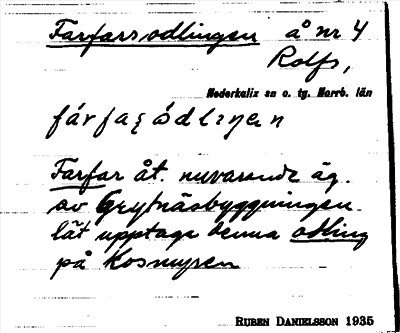 Farfarsodlingen å nr 4
Rolfs,
Nederkalix sn o. tg. Norrb. län
fárfaʂódlıŋen
Farfar åt. nuvarande äg.
av Grytnäsbyggningen
lät upptaga denna odling
på Kosmyren
RUBEN DANIELSSON 1935